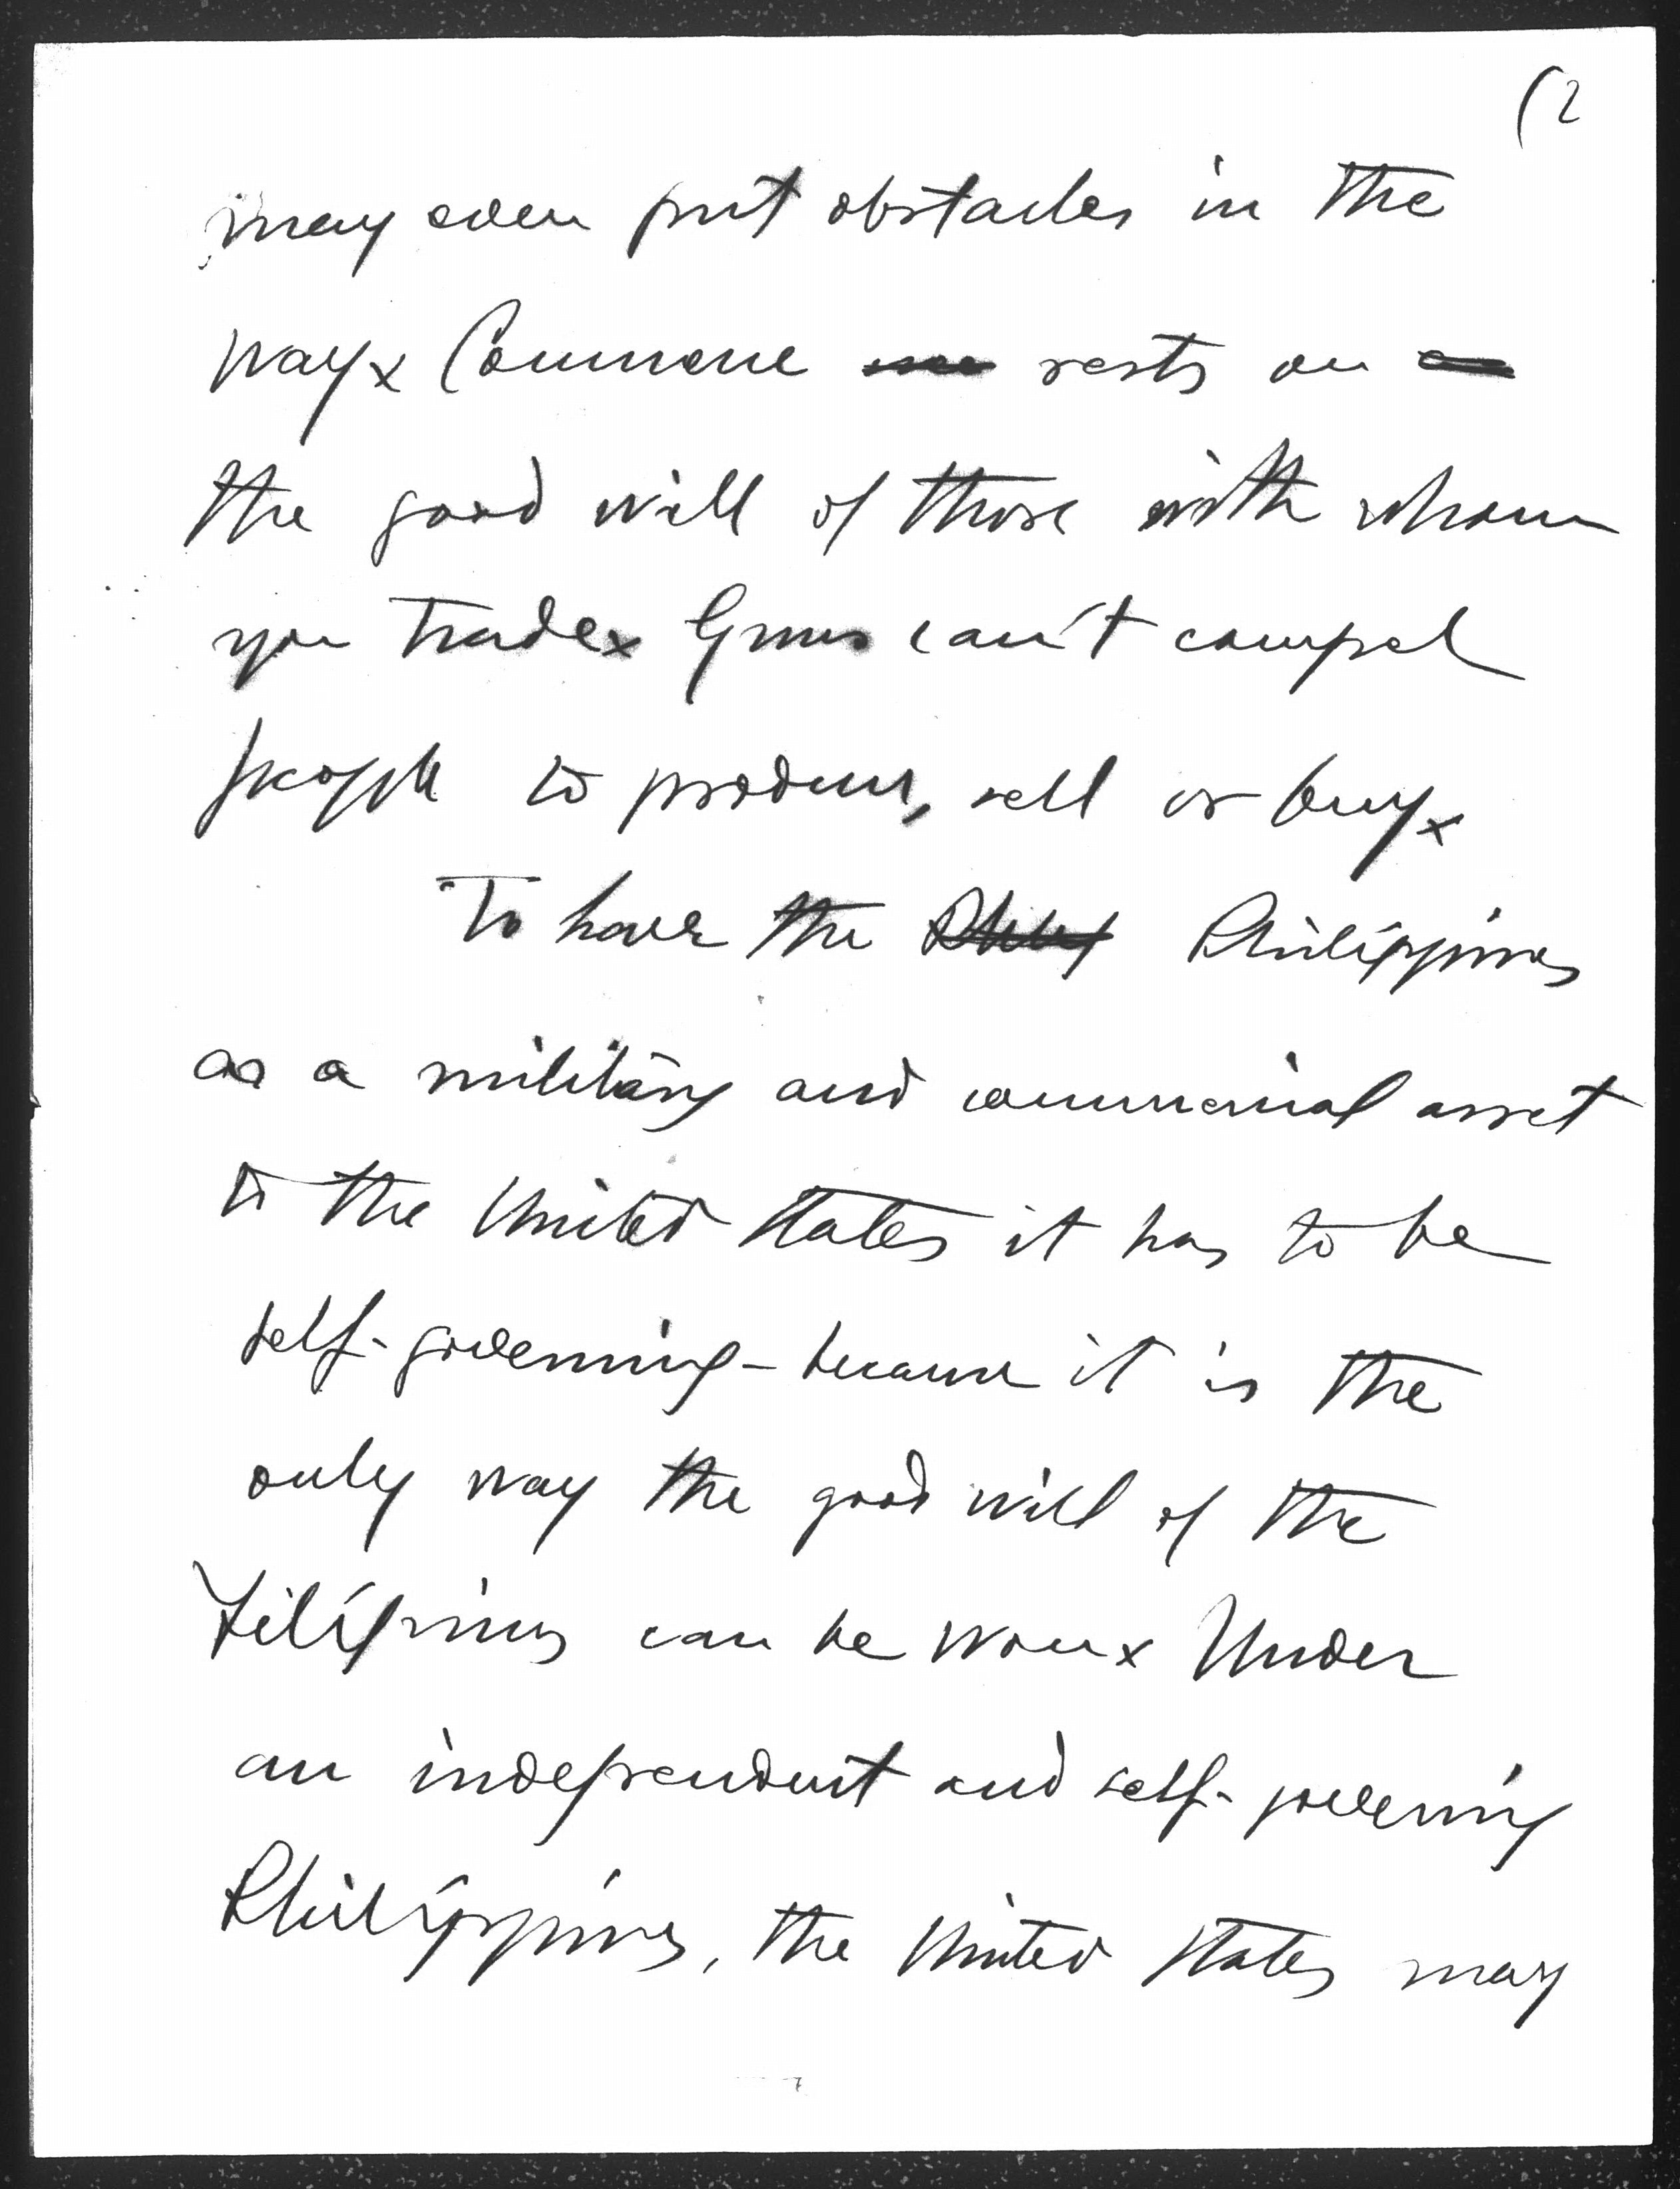 (2
may even put obstacles in the
way x Commerce rests on
the good will of those with whom
you trade x Guns can't compel
people to produce, sell or buy x
To have the Philippines
as a military and commercial asset
to the United States it has to be
self-governing - because it is the
only way the good will of the
Filipinos can be won x Under
an independent and self-governing
Philippines, the United States may